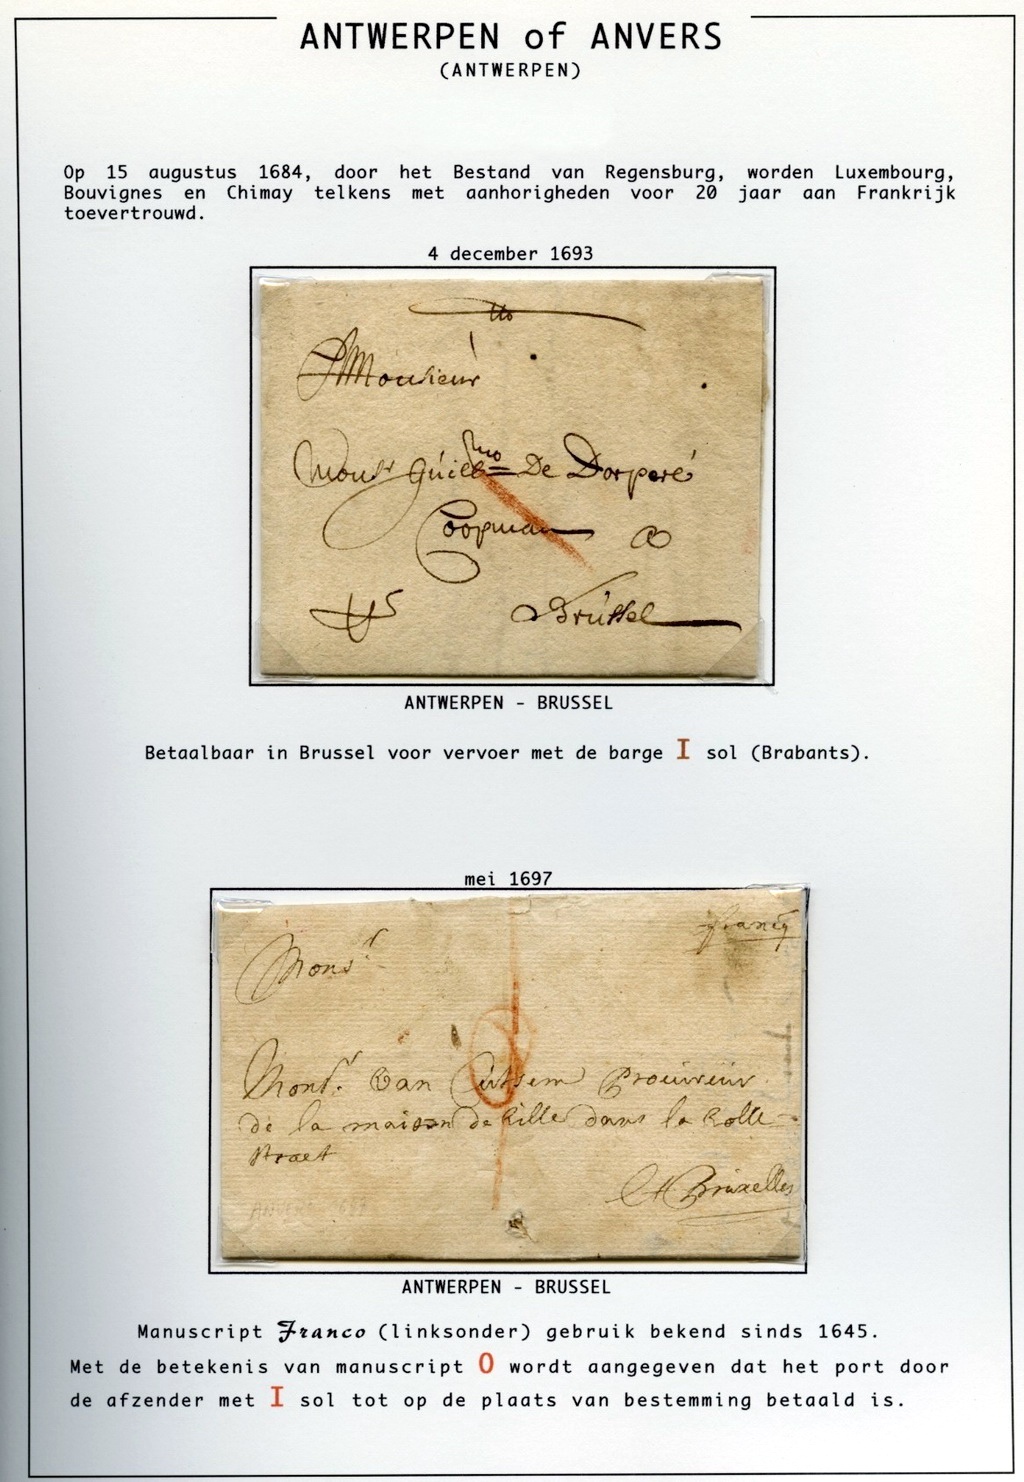 ANTWERPEN of ANVERS
(ANTWERPEN)
Op 15 augustus 1684, door het Bestand van Regensburg, worden Luxembourg,
Bouvignes en Chimay telkens met aanhorigheden voor 20 jaar aan Frankrijk
toevertrouwd.
4 december 1693
Monsieur
Monsr Guillmo De Dorperé
Coopman
Brússel
ANTWERPEN - BRUSSEL
Betaalbaar in Brussel voor vervoer met de barge I sol (Brabants).
mei 1697
franco
Monsr
Monsr. Van Cutsem
de la maison de Lille dans la
straet
A Bruxelles
ANTWERPEN - BRUSSEL
Manuscript Franco (linksonder) gebruik bekend sinds 1645.
Met de betekenis van manuscript O wordt aangegeven dat het port door
de afzender met I sol tot op de plaats van bestemming betaald is.